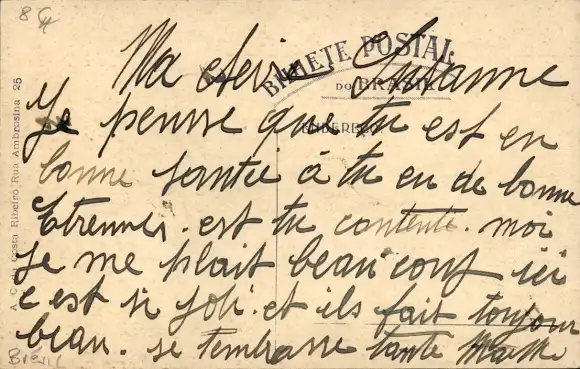 8
BILHETE POSTAL
DO BRASIL
ENDEREÇO
A. C. da Costa Ribeiro, Rua Ambrosina 25
Ma cherie Susanne
Je pensse que tu est en
bonne santée à tu eu de bonne
Etrennes. est tu contente. moi
je me plait beaucoup ici
c'est si joli. et ils fait toujour
beau. je tembrasse tante